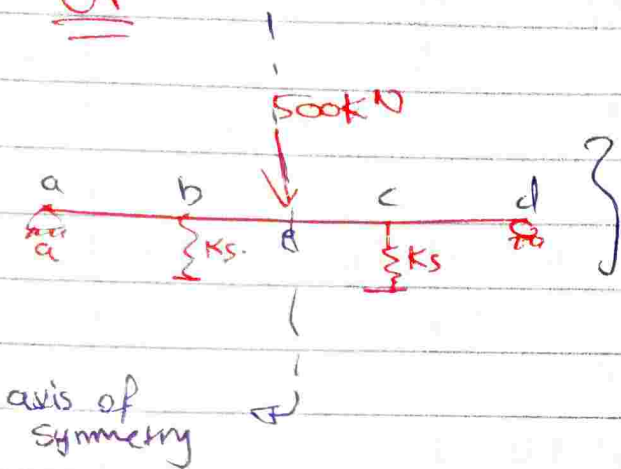 500kN
a
b
c
d
a
Ks.
e
Ks
axis of
symmetry